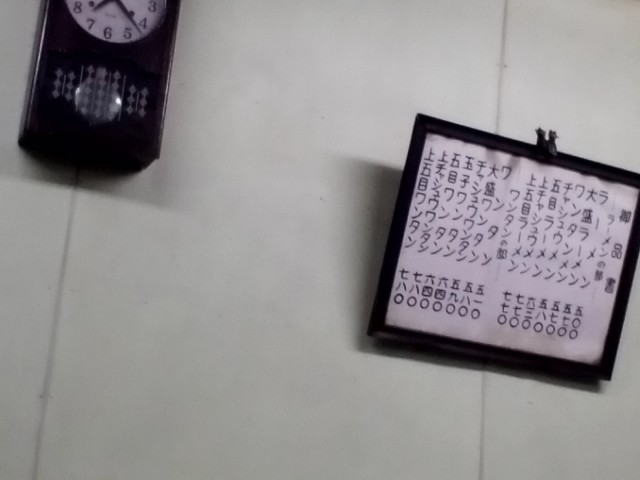 8 7 6 5 4 3
御品書
ラーメンの部
ラーメン 五〇〇
大盛ラーメン 五七〇
ワンタンメン
チャシュウメン 五八〇
五目ラーメン 六三〇
上チャシュウメン 七七〇
上五目ラーメン 七七〇
ワンタンの部
ワンタン 五一〇
大盛ワンタン 五八〇
チャシュウワンタン 五九〇
玉子ワンタン 六四〇
五目ワンタン 六四〇
上チャシュウワンタン 七八〇
上五目ワンタン 七八〇